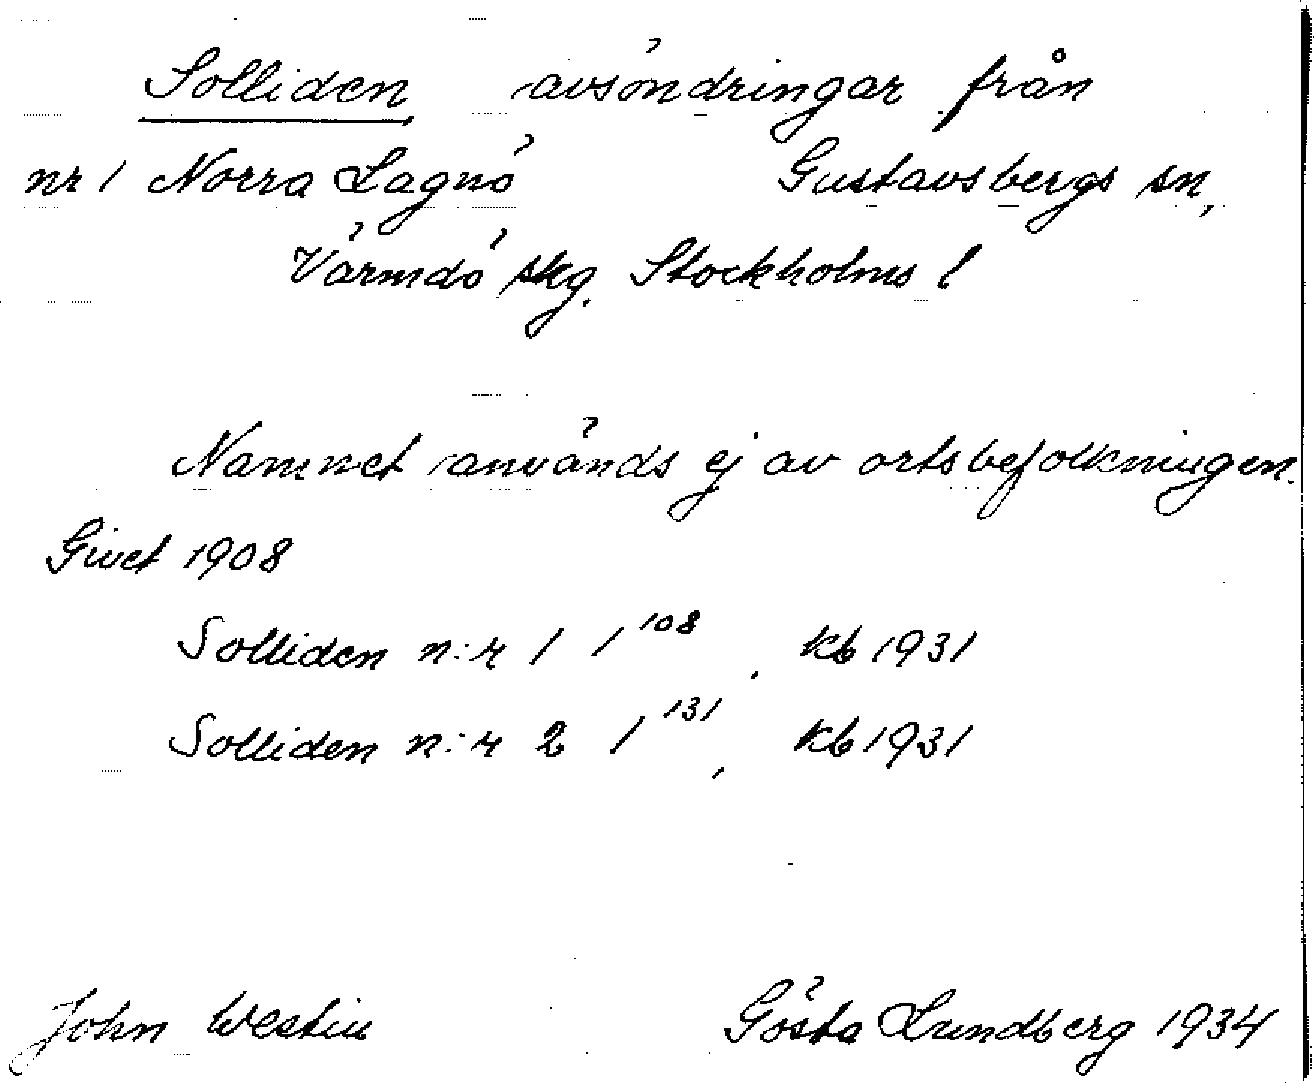 Solliden avsöndringar från
nr 1 Norra Lagnö Gustavsbergs sn,
Värmdö skg. Stockholms l
Namnet används ej av ortsbefolkningen.
Givet 1908
Solliden n:r 1 1¹⁰⁸, kb 1931
Solliden n:r 2 1¹³¹, kb 1931
John Westin Gösta Lundberg 1934